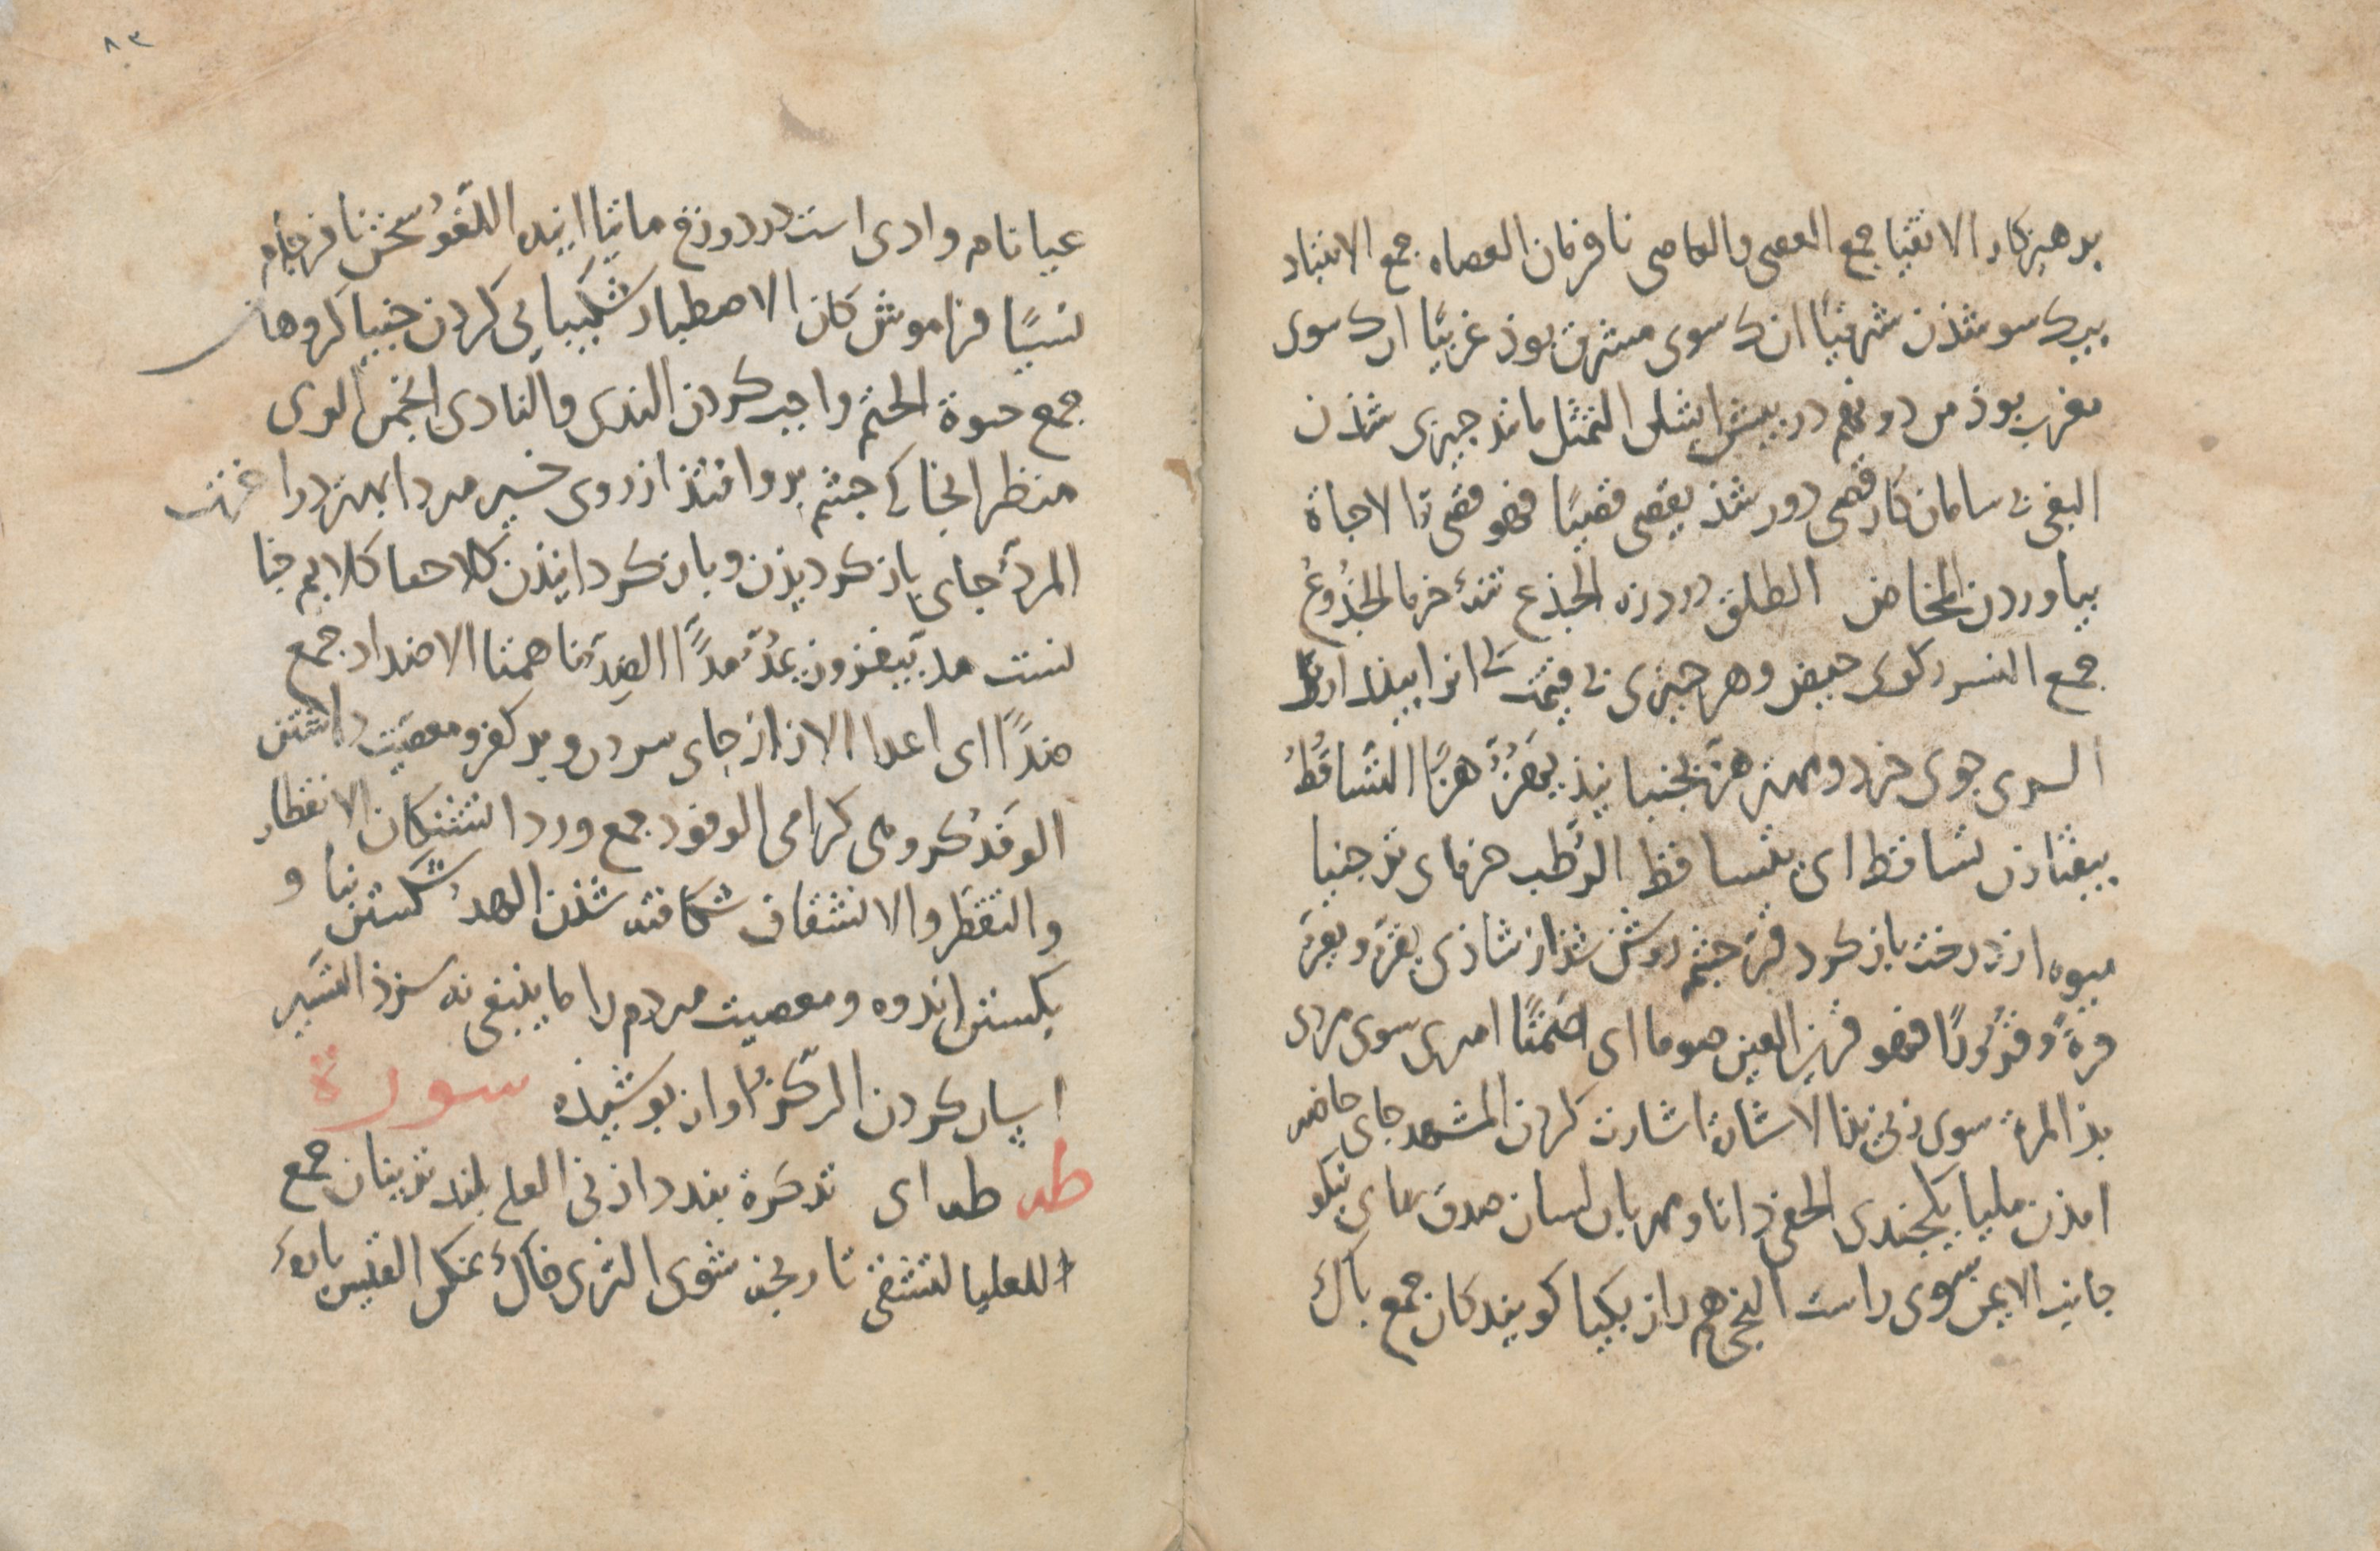 برهیزکار الاتقیا جمع العصی والعاصی نافرمان العصاه جمع الانتباد
بیک سو شذن شرقیًا انک سوی مشرق بوذ غربیًا انک سوی
مغرب بوذ من دونهم در بیش ایشان التمثل مانند جیزی شذن
البغی بی سامان کار قصی دور شذ یقصی قصیًا فهو قصی الاجاة
بیاوردن المخاض الطلق درد زه الجذع تنهٔ خرما الجذوعُ
جمع النسی رکوی حیض وهر جیزی بی قیمت کی انرا بیندازند
السری جوی خرد و مهتر هزّ بجنبانیذ یهُزُّ هزًّا التساقُطُ
بیفتاذن تساقط ای یتساقط الرُطب خرمای تر جنیا
میوه از درخت باز کرد قرّ جشم روشن شذ از شاذی یقرّ و یقرّ
قرةً وقُرُورًا فهو قریر العین صوما ای صَمْتًا امری سوی مردی
بذ المرة سوی زنی بذ الاشارة اشارت کردن المشهد جای حاضر
امذن ملیا یکجندی الحفی دانا و مهربان لسان صدق ثنای نیکو
جانب الایمن سوی راست النجی هم راز بکیا کویندکان جمع باک
۸۳
غیا نام وادی است در دوزخ ماتیا اینده اللّغوُ سخن نافرجام
نسیًا فراموش کان الاصطبار شکیبایی کردن جثیا کروهان
جمع حثوة الحتم واجب کردن الندی والنادی انجمن الری
منظر انجا کی جشم بر وافتذ از روی خیر مردا بهتر درا
المردّ جای باز کردیذن و باز کردانیذن کلا حقا کلا بهم جنا
نست مد بیفزوذ یمُدّ مدًّا الضِدّ ناهمتا الاضداد جمع
ضدًّا ای اعدا الاز از جای بردن و بر کفر و معصیت داشتن
الوَفدُ کروهی کرامی الوفود جمع وردا تشنکان الانفطار
والتفطر والانشقاق شکافته شذن الهدُّ شکستن بنا و
بکستن اندوه و معصیت مردم را ما ینبغی نه سزذ التسیر
اسان کردن الرّکزُ اواز بوشیذه سورة
طه طه ای تذکرة بند داذنی العلی بلند ترینان جمع
العلیا لتشقی تا رنجه شوی الثری خاک نمکن القبس بارهٔ